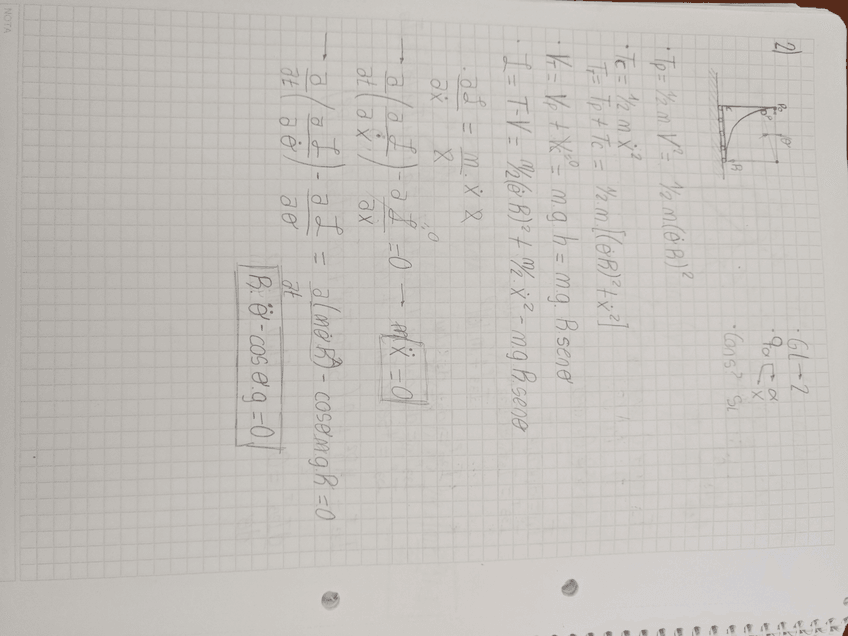 NOTA
2)
· GL → 2
· q₀ → α
→ x
· Cons? Si
R
R
· Tp = 1/2 m V² = 1/2 m (θ̇R)²
· Tc = 1/2 m ẋ²
T = Tp + Tc = 1/2 m [(θ̇R)² + ẋ²]
· VT = Vp + Vc = m.g.h = mg.R senθ
· L = T - V = m/2 (θ̇R)² + m/2 ẋ² - mg R.senθ
· ∂L/∂ẋ = m.ẋ
→ ∂/∂t (∂L/∂ẋ) - ∂L/∂x = 0 → mẍ = 0
→ ∂/∂t (∂L/∂θ̇) - ∂L/∂θ = ∂(mθ̇R²)/∂t - cosθ mg.R = 0
R.θ̈ - cosθ.g = 0